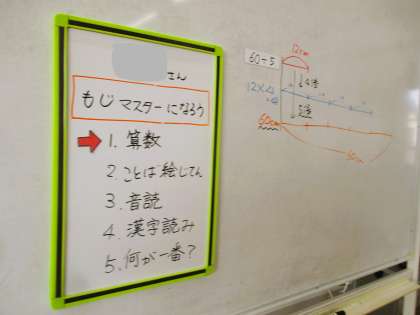 さん
もじマスターになろう
1. 算数
2. ことば絵じてん
3. 音読
4. 漢字読み
5. 何が一番?
60÷5
12cm
12×4
60cm